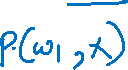 P(ω₁, x)